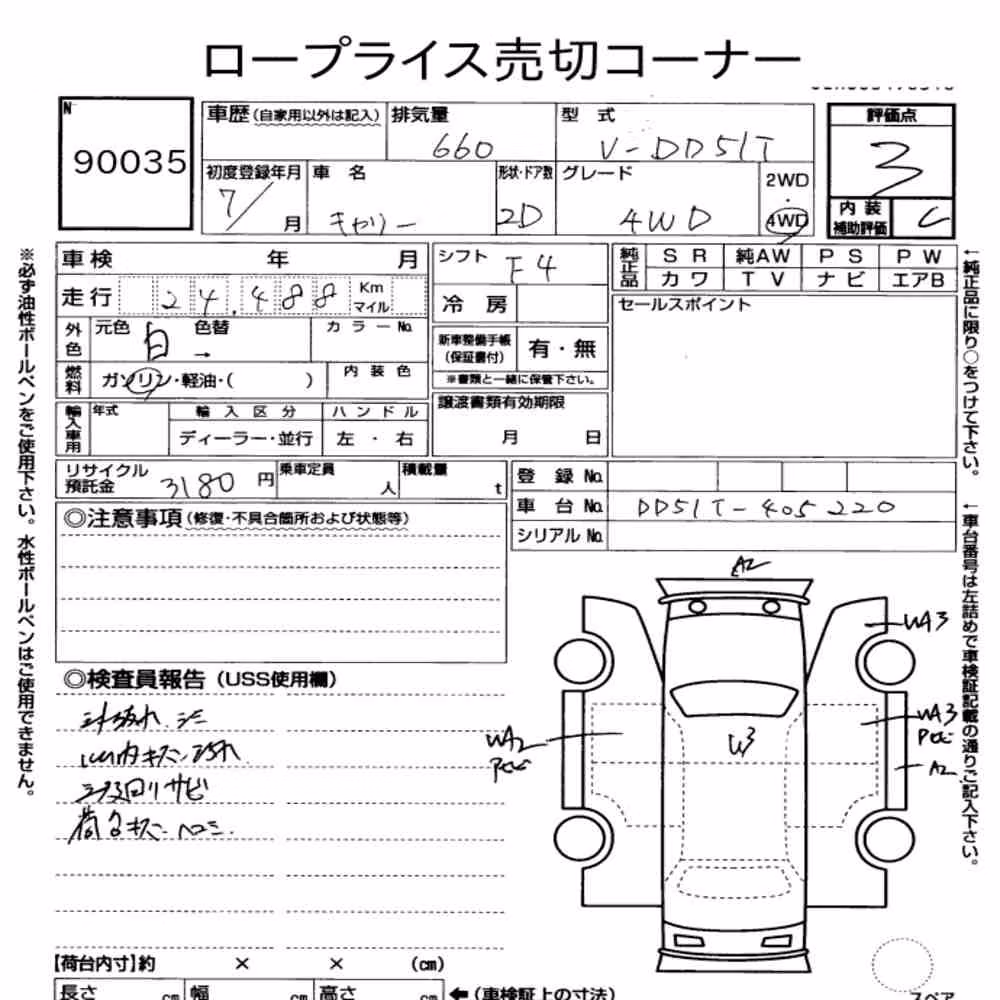 ロープライス売切コーナー
N
90035
車歴 (自家用以外は記入)
排気量
660
型 式
V-DD51T
評価点
3
初度登録年月
7/ 月
車 名
キャリー
形状・ドア数
2D
グレード
4WD
2WD
・
4WD
内 装
補助評価
C
車検 年 月
走行
24,488
Km
マイル
外色
元色
白
色替
→
カラーNo.
燃料
ガソリン・軽油・( )
内 装 色
輸入車用
年式
輸 入 区 分
ディーラー・並行
ハ ン ド ル
左 ・ 右
シフト
F4
冷 房
新車整備手帳
(保証書付)
有・無
※書類と一緒に保管下さい。
譲渡書類有効期限
月 日
純正品
S R
純AW
P S
P W
カ ワ
T V
ナ ビ
エアB
セールスポイント
リサイクル
預託金
3180 円
乗車定員
人
積載量
t
登 録 No.
車 台 No.
DD51T-405220
シリアル No.
◎注意事項 (修復・不具合箇所および状態等)
◎検査員報告 (USS使用欄)
下廻りサビ
荷台キズ、ヘコミ.
A2
WA3
WA3
A2
W3
WA2
【荷台内寸】約 × × (cm)
長さ cm
幅 cm
高さ cm
←(車検証上の寸法)
スペア
※必ず油性ボールペンをご使用下さい。水性ボールペンはご使用できません。
←純正品に限り○をつけて下さい。
←車台番号は左詰めで車検証記載の通りご記入下さい。